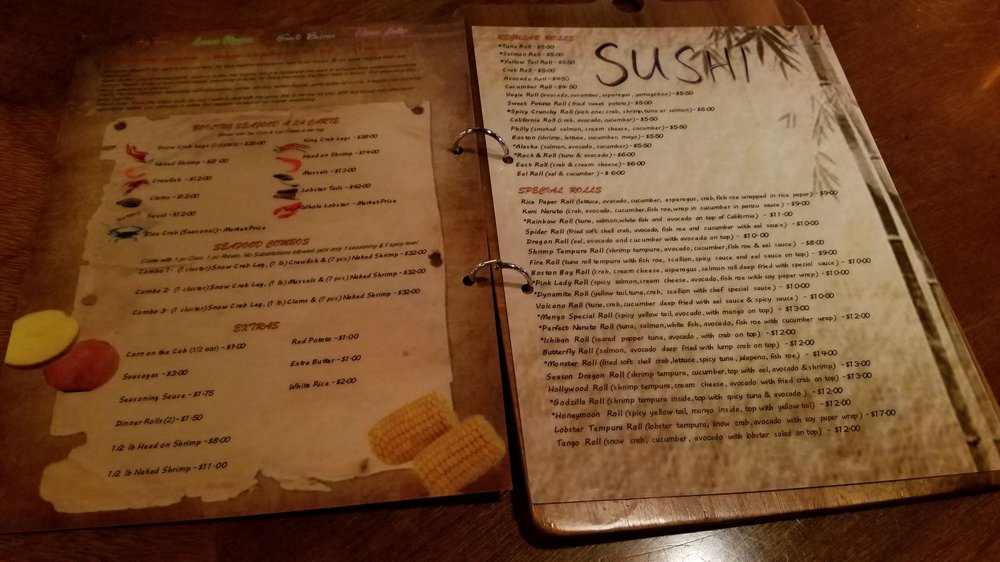 BOILING SEAFOOD À LA CARTE
Snow Crab Legs
King Crab Legs - $38.00
Naked Shrimp - $21.00
Head on Shrimp - $14.00
Crawfish - $12.00
Mussels - $13.00
Clams - $12.00
Lobster Tails - $42.00
Squid - $12.00
Whole Lobster - Market Price
Blue Crab (Seasonal) - Market Price
SEAFOOD COMBOS
Come with 1 pc Corn, 1 pc Potato. No Substitutions allowed, pick only 1 seasoning & 1 spicy level
Combo 1- (1 cluster) Snow Crab Leg, (1 lb) Crawfish & (7 pcs) Naked Shrimp - $32.00
Combo 2- (1 cluster) Snow Crab Leg, (1 lb) Mussels & (7 pcs) Naked Shrimp - $32.00
Combo 3- (1 cluster) Snow Crab Leg, (1 lb) Clams & (7 pcs) Naked Shrimp - $32.00
EXTRAS
Corn on the Cob (1/2 ear)
Red Potato - $1.00
Sausages - $3.00
Extra Butter - $1.00
Seasoning Sauce - $1.75
White Rice - $2.00
Dinner Rolls (2) - $1.50
1/2 lb Head on Shrimp - $8.00
1/2 lb Naked Shrimp - $11.00
SUSHI
REGULAR ROLLS
*Tuna Roll - $5.50
*Salmon Roll - $5.00
*Yellow Tail Roll - $5.50
Crab Roll - $5.00
Avocado Roll - $4.50
Cucumber Roll - $4.50
Vegie Roll (avocado, cucumber, asparagus, yamagobou) - $5.50
Sweet Potato Roll (fried sweet potato) - $5.00
*Spicy Crunchy Roll (pick one: crab, shrimp, tuna or salmon) - $6.00
California Roll (crab, avocado, cucumber) - $5.50
Philly (smoked salmon, cream cheese, cucumber) - $5.50
Boston (shrimp, lettuce, cucumber, mayo) - $5.50
*Alaska (salmon, avocado, cucumber) - $5.50
*Rock & Roll (tuna & avocado) - $6.00
East Roll (crab & cream cheese) - $6.00
Eel Roll (eel & cucumber) - $6.00
SPECIAL ROLLS
Rice Paper Roll (lettuce, avocado, cucumber, asparagus, crab, fish roe wrapped in rice paper) - $9.00
Kani Naruto (crab, avocado, cucumber, fish roe, wrap in cucumber in ponzu sauce) - $9.00
*Rainbow Roll (tuna, salmon, white fish and avocado on top of California) - $11.00
Spider Roll (fried soft shell crab, avocado, fish roe and cucumber with eel sauce) - $10.00
Dragon Roll (eel, avocado and cucumber with avocado on top) - $10.00
Shrimp Tempura Roll (shrimp tempura, avocado, cucumber, fish roe & eel sauce) - $8.00
Fire Roll (tuna roll tempura with fish roe, scallion, spicy sauce and eel sauce on top) - $9.00
Boston Bay Roll (crab, cream cheese, asparagus, salmon roll deep fried with special sauce) - $10.00
*Pink Lady Roll (spicy salmon, cream cheese, avocado, fish roe with soy paper wrap) - $10.00
*Dynamite Roll (yellow tail, tuna, crab, scallion with chef special sauce) - $10.00
Volcano Roll (tuna, crab, cucumber deep fried with eel sauce & spicy sauce) - $10.00
*Mango Special Roll (spicy yellow tail, avocado, with mango on top) - $13.00
*Perfect Naruto Roll (tuna, salmon, white fish, avocado, fish roe with cucumber wrap) - $12.00
*Ichiban Roll (seared pepper tuna, avocado, with crab on top) - $12.00
Butterfly Roll (salmon, avocado deep fried with lump crab on top) - $12.00
*Monster Roll (fried soft shell crab, lettuce, spicy tuna, jalapeno, fish roe) - $14.00
Season Dragon Roll (shrimp tempura, cucumber, top with eel, avocado & shrimp) - $13.00
Hollywood Roll (shrimp tempura, cream cheese, avocado with fried crab on top) - $13.00
*Godzilla Roll (shrimp tempura inside, top with spicy tuna & avocado) - $12.00
*Honeymoon Roll (spicy yellow tail, mango inside, top with yellow tail) - $12.00
Lobster Tempura Roll (lobster tempura, snow crab, avocado with soy paper wrap) - $17.00
Tango Roll (snow crab, cucumber, avocado with lobster salad on top) - $12.00